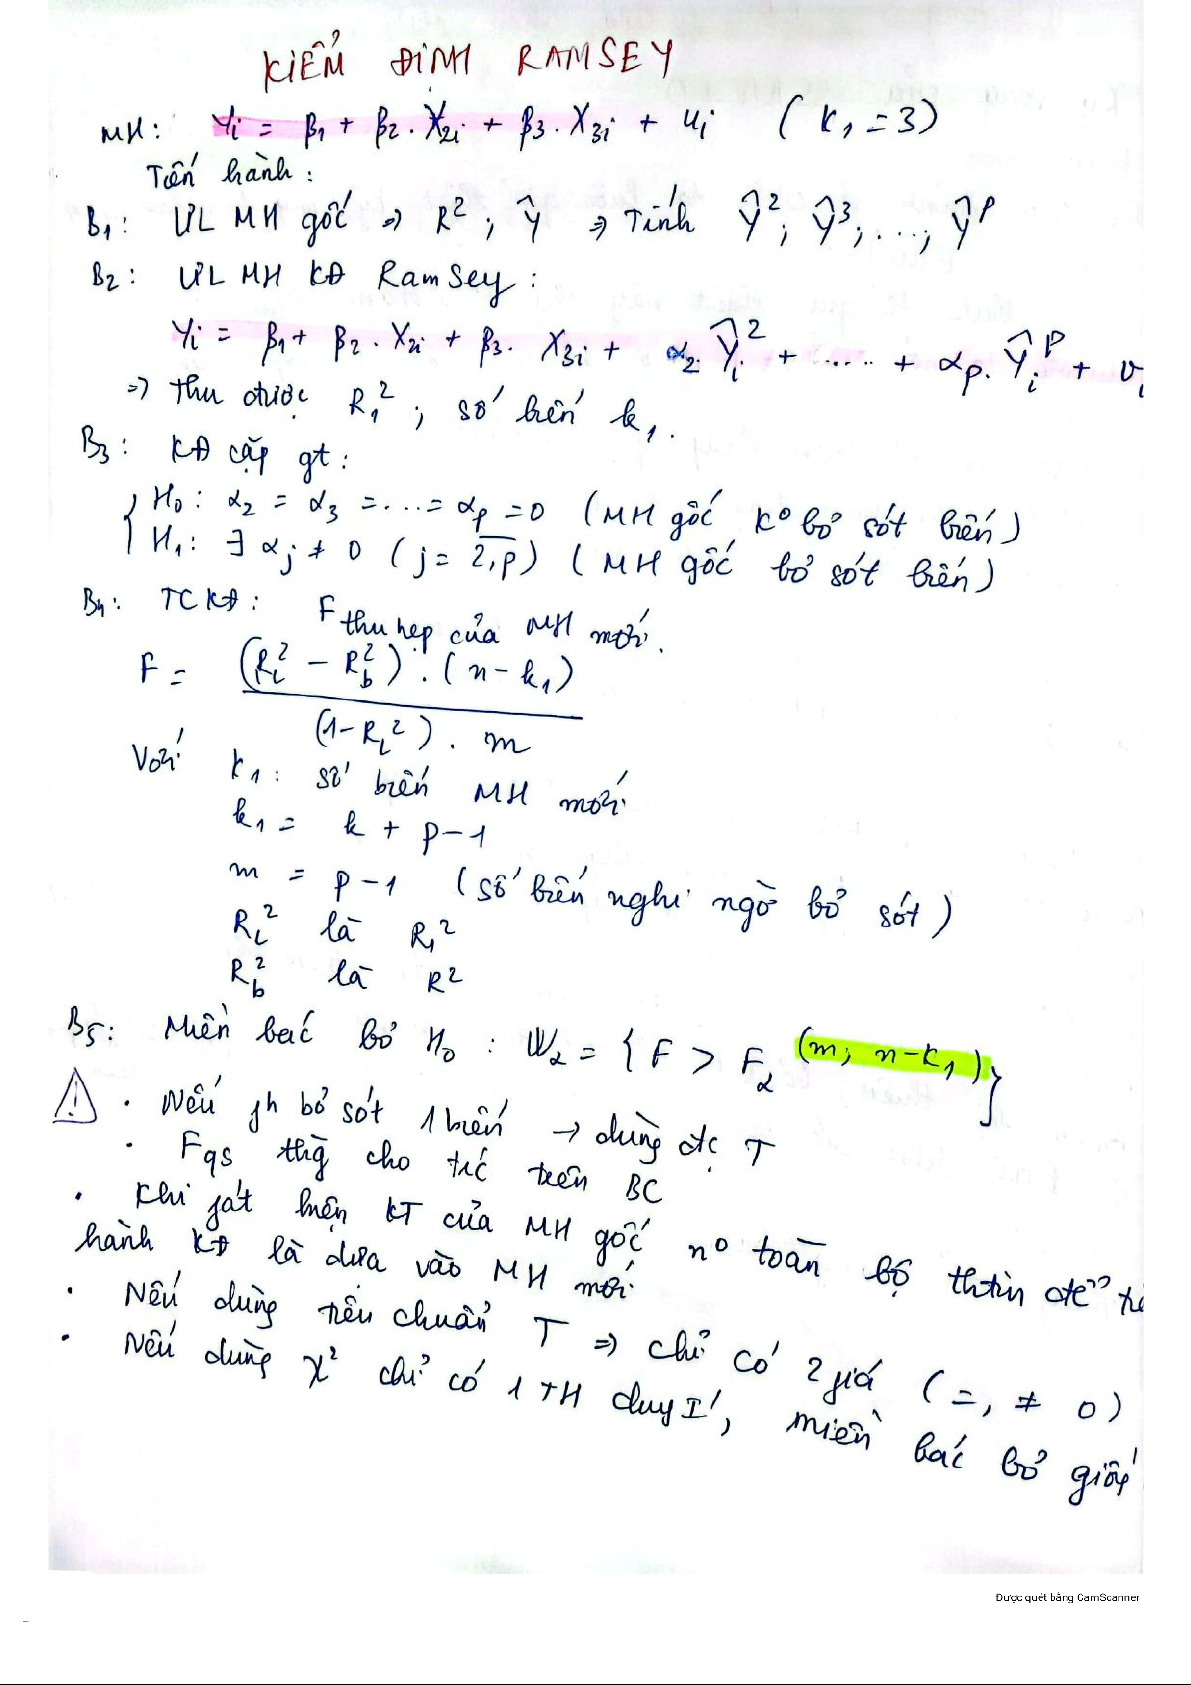 KIỂM ĐỊNH RAMSEY
MH: Yi = β1 + β2. X2i + β3. X3i + ui (k1 = 3)
Tiến hành:
B1: ƯL MH gốc => R²; Ŷ => Tính Ŷ²; Ŷ³; ...; Ŷᵖ
B2: ƯL MH KĐ Ramsey:
Yi = β1 + β2. X2i + β3. X3i + α2. Ŷi² + ..... + αp. Ŷiᵖ + vi
=> thu được R1²; số biến k1.
B3: KĐ cặp gt:
H0: α2 = α3 = ... = αp = 0 (MH gốc k° bỏ sót biến)
H1: ∃ αj ≠ 0 (j = 2,p) (MH gốc bỏ sót biến)
B4: TCKĐ: F thu hẹp của MH mới.
F = (RL² - Rb²).(n-k1)
(1-RL²). m
Với k1: số biến MH mới
k1 = k + p-1
m = p-1 (số biến nghi ngờ bỏ sót)
RL² là R1²
Rb² là R²
B5: Miền bác bỏ H0: Wα = { F > Fα (m; n-k1) }
! · Nếu gh bỏ sót 1 biến → dùng đc T
· Fqs thg cho trc trên BC
· Khi phát hiện KT của MH gốc n° toàn bộ thtin để
hành KĐ là dựa vào MH mới
· Nếu dùng tiêu chuẩn T => chỉ có 2 giá (=, ≠ 0)
· Nếu dùng χ² chỉ có 1 TH duy I, miền bác bỏ giống
Được quét bằng CamScanner